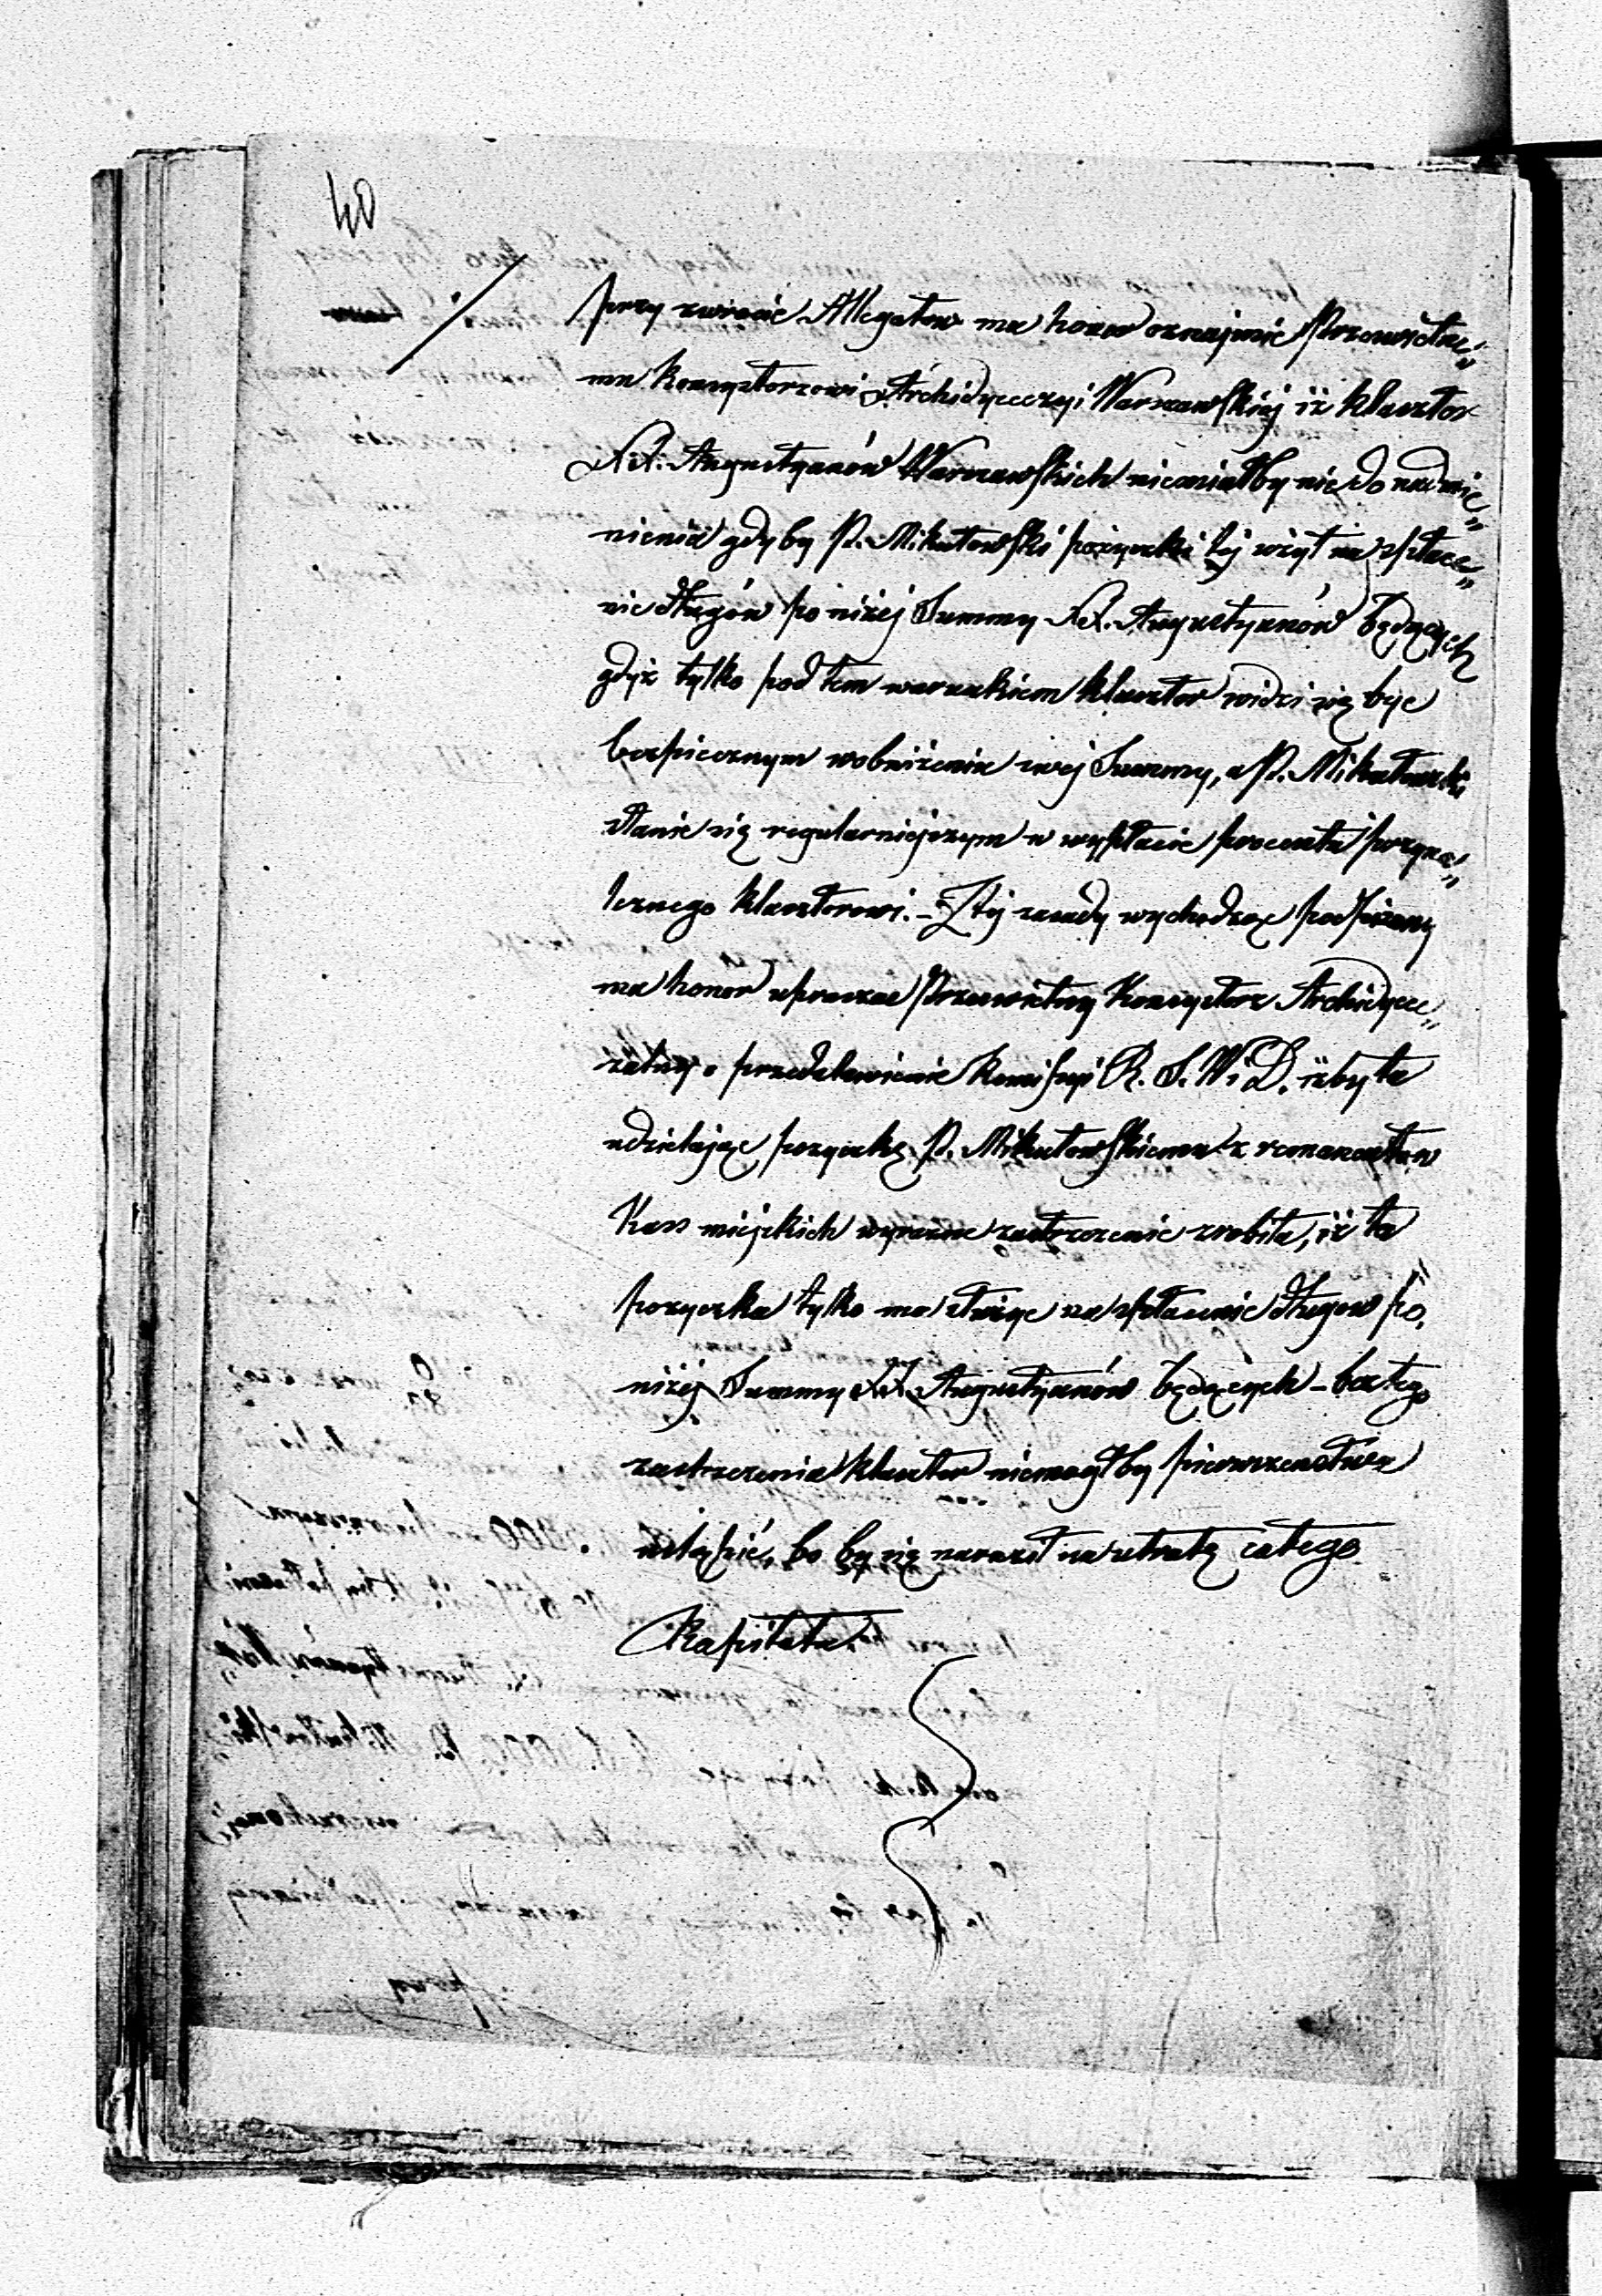 40
przy zwrocie Allegatow ma honor oznajmić Prześwietne„
mu Konsystorzowi Archidyecezyi Warszawskiej iż klasztor
XX. Augustyanów Warszawskich niemiałby nic do nadmie„
nienia gdyby P. Mikułowski pożyczki tej użył na spłace„
nie długów poniżej Summy XX. Augustyanów będących
gdyż tylko pod tem warunkiem klasztor widzi się być
bezpiecznym wobniżenia swej Summy, a P. Mikułowski
stanie się regularniejszym w wypłacie procentu przyna„
leznego klasztorowi. – Z tej zasady wychodząc podpisany
ma honor upraszac Prześwietny Konsystorz Archidyece„
zalny o przedstawienie Komissyi R. S. W. i D. iżby ta
udzielając pozyczkę P. Mikułowskiemu z remanentow
Kass miejskich wyraźne zastrzezenie zrobiła, iż ta
pozyczka tylko ma służyc na spłacenie długow po„
niżej Summy XX. Augustyanów będących – bez tego
zastrzezenia klasztor niemogłby pierwszenstwa
ustąpić, bo by się naraził na utratę całego
Kapitału.